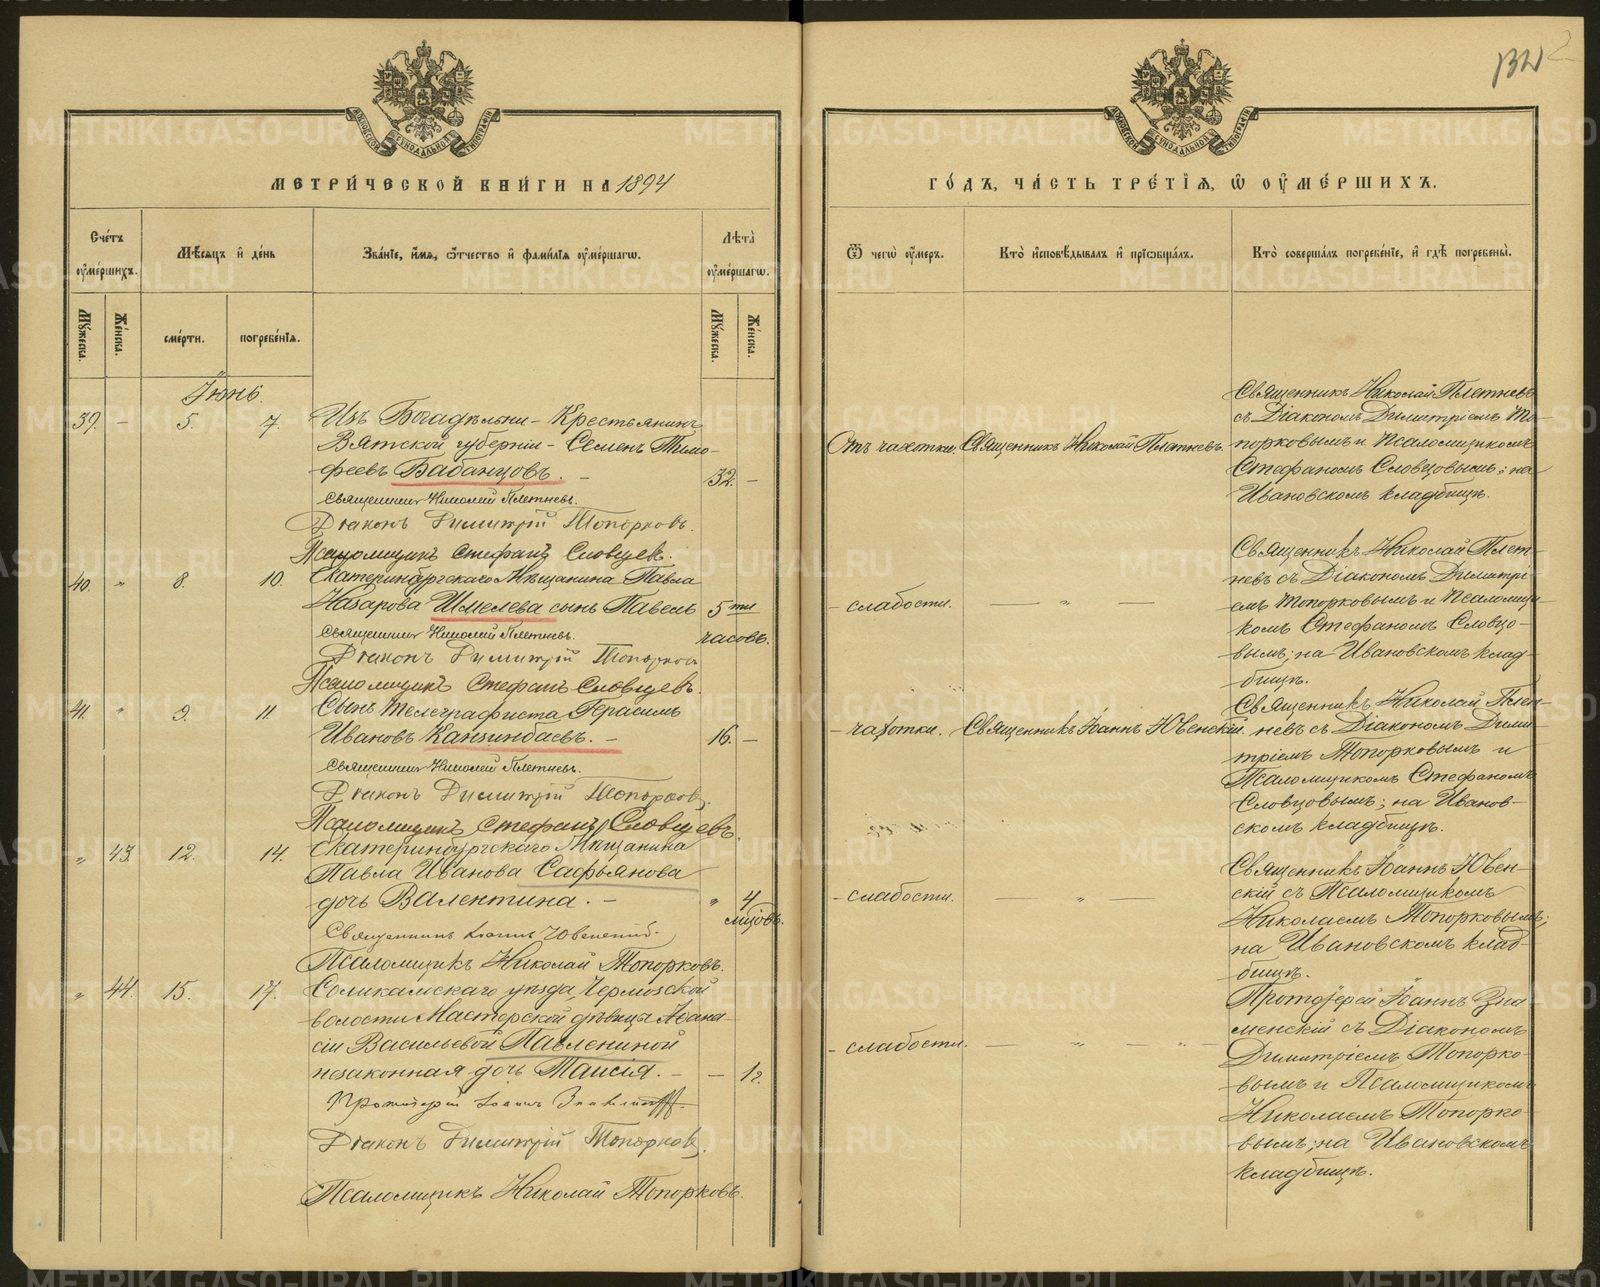 МЕТРИ́ЧЕСКОЙ КНИ́ГИ НА 1894
ГО́ДЪ, ЧА́СТЬ ТРЕ́ТІѦ, Ѡ ОУ҆МЕ́РШИХЪ.
Сче́тъ оу҆ме́ршихъ.
Мѣ́сяцъ и҆ де́нь
Зва́ніе, и҆́мѧ, ѻ҆́тчество и҆ фами́лїѧ оу҆ме́ршагѡ.
Лѣ́та оу҆ме́ршагѡ.
Ѿ чегѡ̀ оу҆́меръ.
Кто̀ и҆сповѣ́дывалъ и҆ прїѻбща́лъ.
Кто̀ соверша́лъ погребе́нїе, и҆ гдѣ̀ погребены̀.
Му́жеска.
Же́нска.
сме́рти.
погребе́нїѧ.
Му́жеска.
Же́нска.
Іюнь.
39. - 5. 7.
Изъ Богадѣльни - Крестьянинъ
Вятской губерніи - Семенъ Тимо-
феевъ Бабанцовъ. -
32. -
Священникъ Николай Плетневъ.
Діаконъ Димитрій Топорковъ.
Псаломщикъ Стефанъ Словцевъ.
Отъ чахотки.
Священникъ Николай Плетневъ.
Священникъ Николай Плетневъ
съ Діакономъ Димитріемъ То-
порковымъ и Псаломщикомъ
Стефаномъ Словцовымъ; на
Ивановскомъ кладбищѣ.
40. " 8. 10.
Екатеринбургскаго Мѣщанина Павла
Назарова Шмелева сынъ Павелъ
5ти
часовъ.
Священникъ Николай Плетневъ.
Діаконъ Димитрій Топорковъ
Псаломщикъ Стефанъ Словцевъ.
- слабости.
— " —
Священникъ Николай Плет-
невъ съ Діакономъ Димитрі-
емъ Топорковымъ и Псаломщи-
комъ Стефаномъ Словцо-
вымъ; на Ивановскомъ клад-
бищѣ.
41. " 9. 11.
Сынъ телеграфиста Герасимъ
Ивановъ Кайзиндаевъ. -
16. -
Священникъ Николай Плетневъ.
Діаконъ Димитрій Топорковъ.
Псаломщикъ Стефанъ Словцевъ.
- чахотки.
Священникъ Іоаннъ Ювенскій.
Священникъ Николай Плет-
невъ съ Діакономъ Дими-
тріемъ Топорковымъ и
Псаломщикомъ Стефаномъ
Словцовымъ; на Иванов-
скомъ кладбищѣ.
" 43. 12. 14.
Екатеринбургскаго Мѣщанина
Павла Иванова Сафьянова
дочь Валентина. -
" 4
мѣсяц.
Священникъ Іоаннъ Ювенскій.
Псаломщикъ Николай Топорковъ.
- слабости.
— " —
Священникъ Іоаннъ Ювен-
скій съ Псаломщикомъ
Николаемъ Топорковымъ;
на Ивановскомъ клад-
бищѣ.
" 44. 15. 17.
Соликамскаго уѣзда, Чермозской
волости Мастерской дѣвицы Афана-
сіи Васильевой Павлениной
незаконная дочь Таисія. -
- 1г.
Протоіерей Іоаннъ Знаменскій.
Діаконъ Димитрій Топорковъ.
Псаломщикъ Николай Топорковъ.
- слабости.
— " — " —
Протоіерей Іоаннъ Зна-
менскій съ Діакономъ
Димитріемъ Топорко-
вымъ и Псаломщикомъ
Николаемъ Топорко-
вымъ; на Ивановскомъ
кладбищѣ.
METRIKI.GASO-URAL.RU